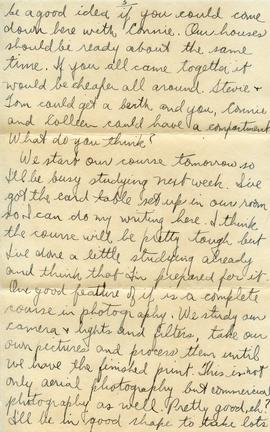 3
be a good idea if you could come
down here with Connie. Our houses
should be ready about the same
time. If you all came together it
would be cheaper all around. Stevie &
Tom could get a berth and you, Connie
and Colleen could have a compartment
What do you think?
We start our course tomorrow so
I'll be busy studying next week. I've
got the card table set up in our room
so I can do my writing here. I think
the course will be pretty tough but
I've done a little studying already
and think that I'm prepared for it.
One good feature of it is a complete
course in photography. We study our
camera & lights and filters, take our
own pictures and process them until
we have the finished print. This is not
only aerial photography but commercial
photography as well. Pretty good, eh?
I'll be in good shape to take lots